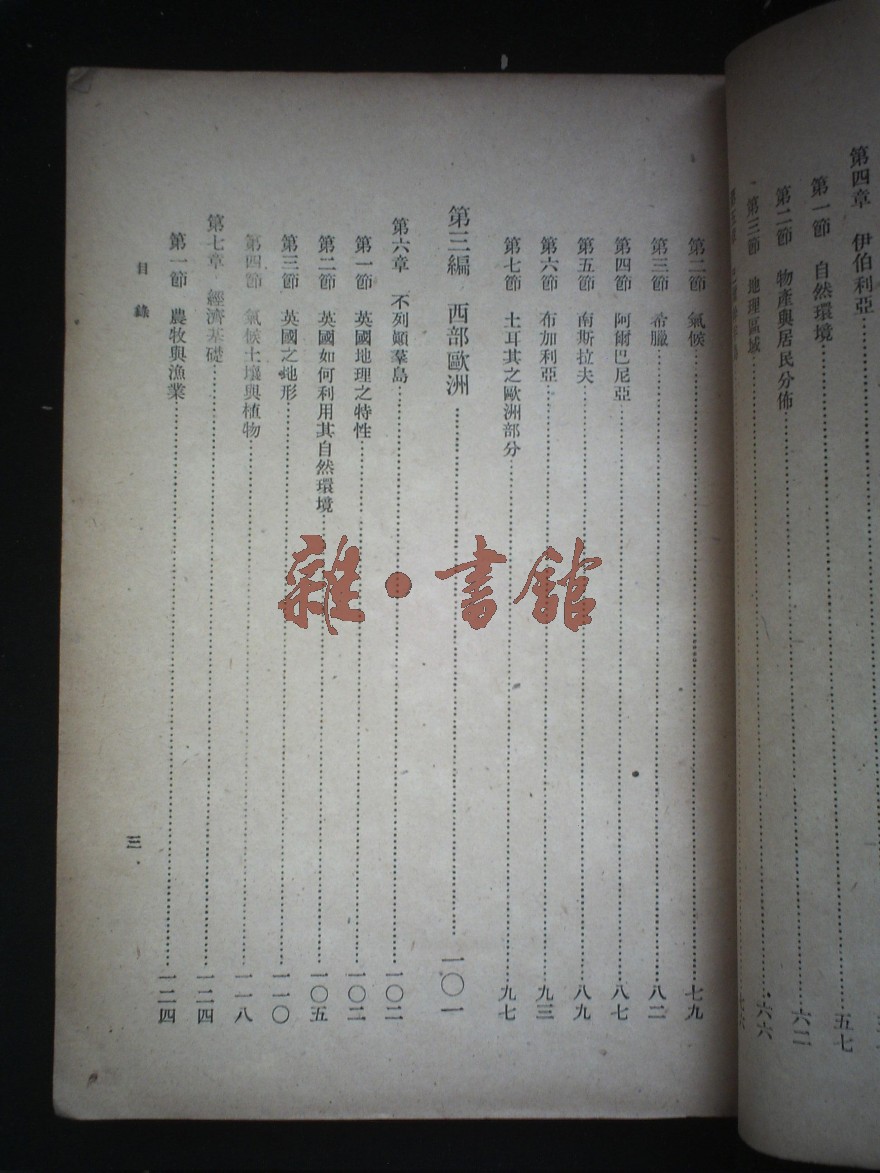 第四章 伊伯利亞
第一節 自然環境……五七
第二節 物產與居民分佈……六二
第三節 地理區域……六六
第二節 氣候……七九
第三節 希臘……八二
第四節 阿爾巴尼亞……八七
第五節 南斯拉夫……八九
第六節 布加利亞……九三
第七節 土耳其之歐洲部分……九七
第三編 西部歐洲……一〇一
第六章 不列顚羣島……一〇二
第一節 英國地理之特性……一〇二
第二節 英國如何利用其自然環境……一〇五
第三節 英國之地形……一一〇
第四節 氣候土壤與植物……一一八
第七章 經濟基礎……一二四
第一節 農牧與漁業……一二四
目錄
三
雜·書館